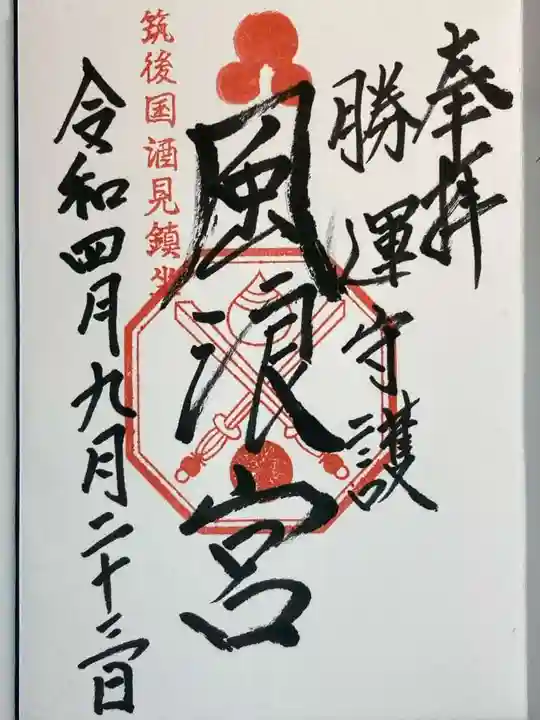 奉拝
勝運守護
風浪宮
筑後国酒見鎮坐
令和四月九月二十三日